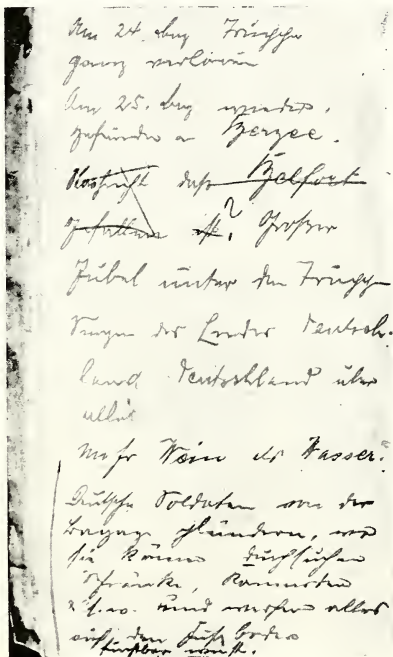 Am 24. Aug Truppe
ganz verloren
Am 25. Aug wieder
gefunden
Nachricht daß Belfort
gefallen ist? Großer
Jubel unter den Truppen
Singen des Liedes Deutsch-
land Deutschland über
alles
Mehr Wein als Wasser.
Deutsche Soldaten von der
Bagage plündern, wo
sie können durchsuchen
Schränke, Kommoden
u.s.w. und werfen alles
auf den Fußboden
furchtbar wüst.